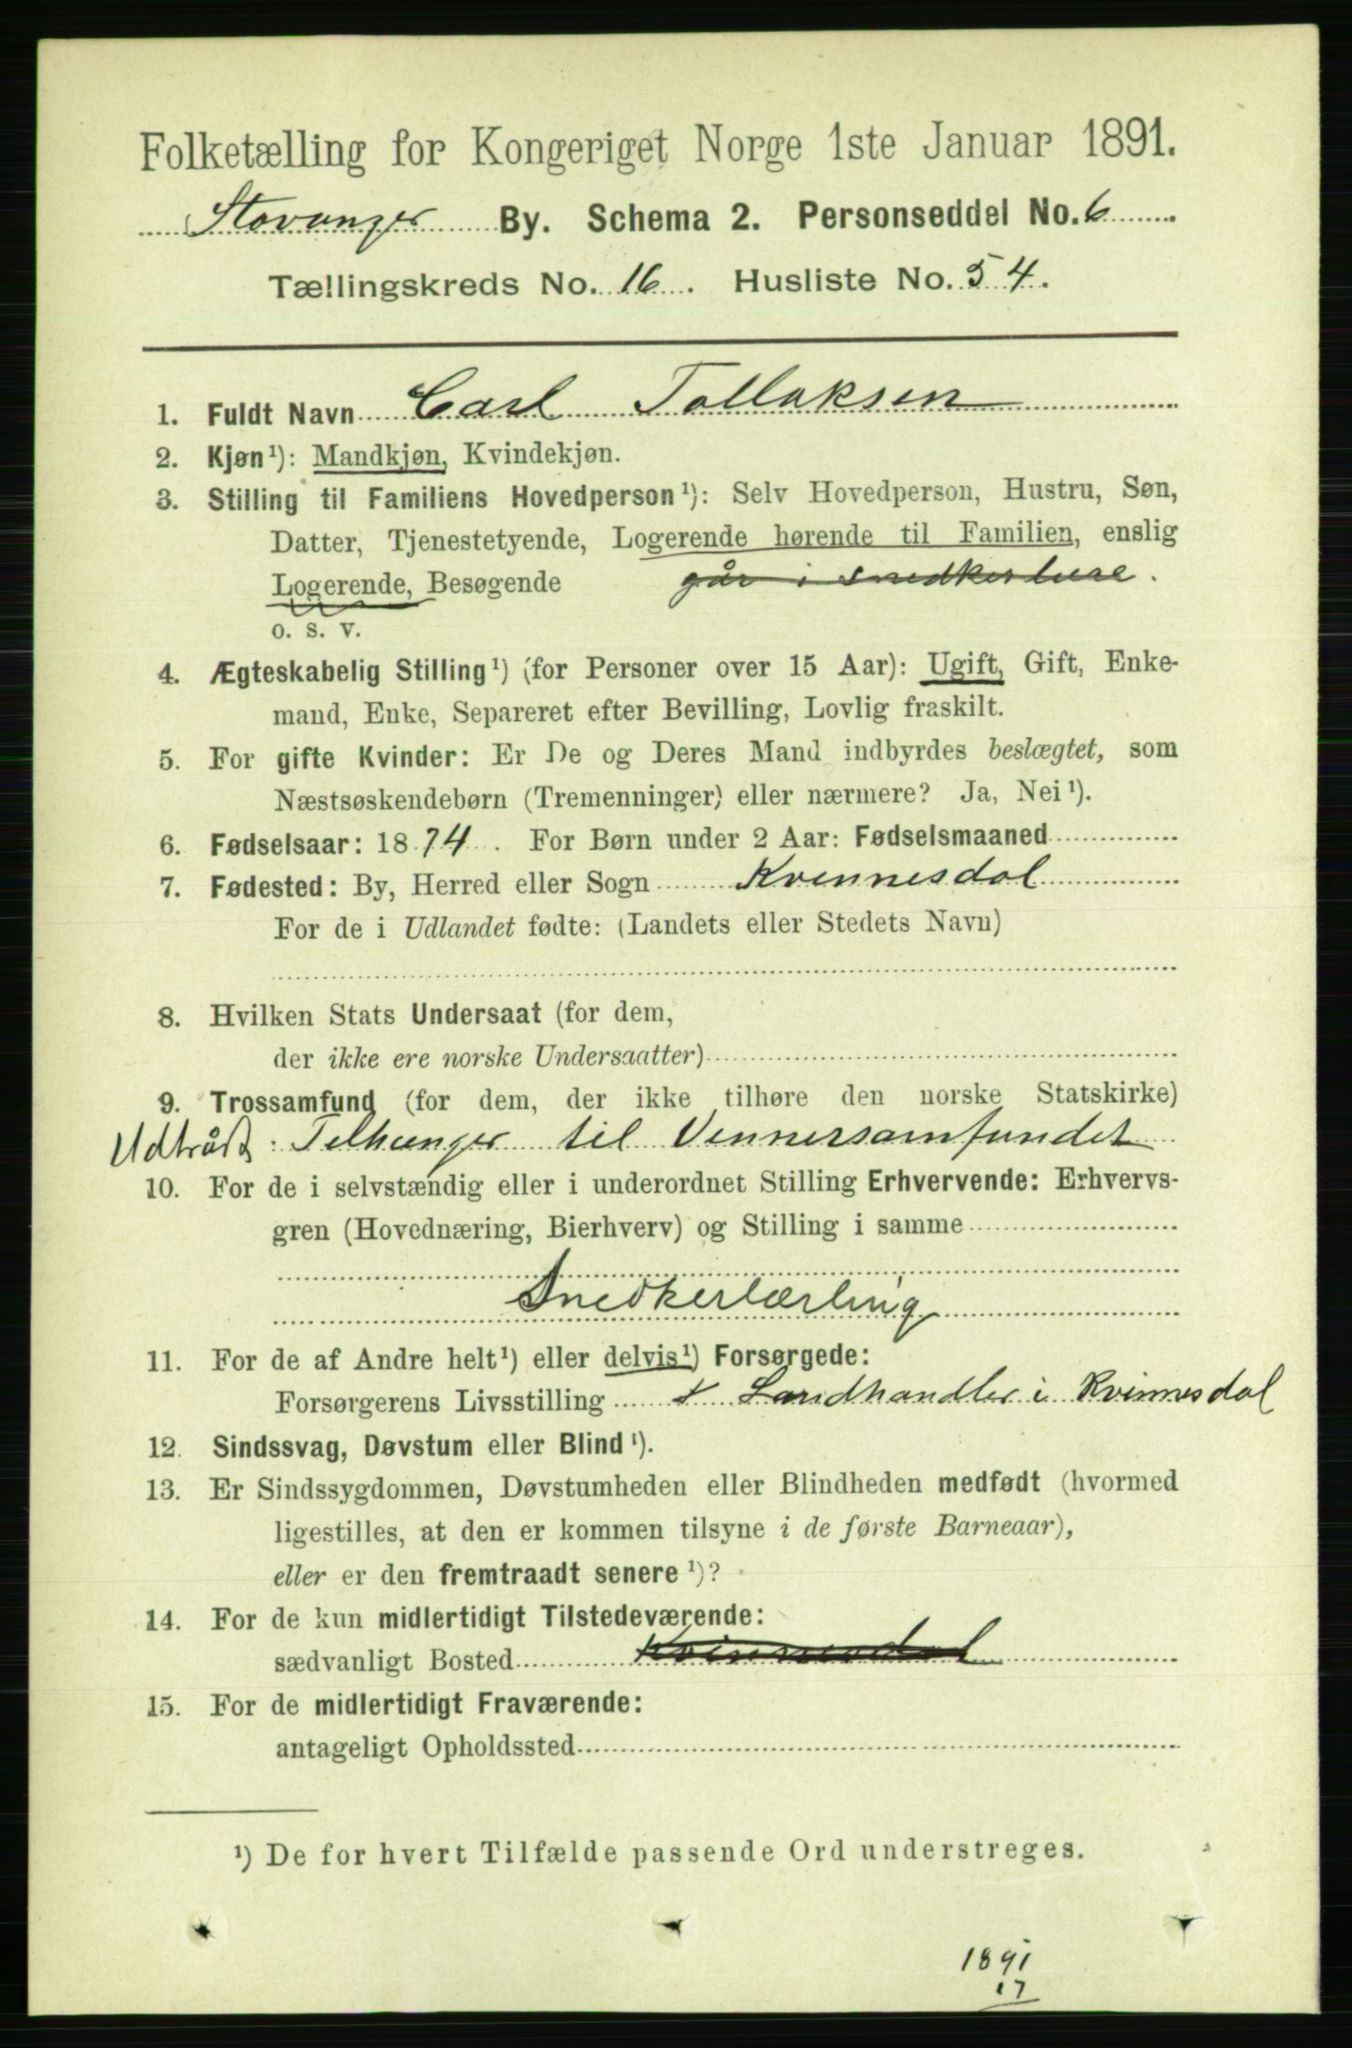 Folketælling for Kongeriget Norge 1ste Januar 1891.
Stavanger By. Schema 2. Personseddel No. 6
Tællingskreds No. 16. Husliste No. 54.
1. Fuldt Navn Carl Tollaksen
2. Kjøn¹): Mandkjøn, Kvindekjøn.
3. Stilling til Familiens Hovedperson¹): Selv Hovedperson, Hustru, Søn,
Datter, Tjenestetyende, Logerende hørende til Familien, enslig
Logerende, Besøgende går i snedkerlære.
o. s. v.
4. Ægteskabelig Stilling¹) (for Personer over 15 Aar): Ugift, Gift, Enke-
mand, Enke, Separeret efter Bevilling, Lovlig fraskilt.
5. For gifte Kvinder: Er De og Deres Mand indbyrdes beslægtet, som
Næstsøskendebørn (Tremenninger) eller nærmere? Ja, Nei¹).
6. Fødselsaar: 1874. For Børn under 2 Aar: Fødselsmaaned
7. Fødested: By, Herred eller Sogn Kvinnesdal
For de i Udlandet fødte: (Landets eller Stedets Navn)
8. Hvilken Stats Undersaat (for dem,
der ikke ere norske Undersaatter)
9. Trossamfund (for dem, der ikke tilhøre den norske Statskirke)
Udtrådt: Tilhænger til Vennersamfundet
10. For de i selvstændig eller i underordnet Stilling Erhvervende: Erhvervs-
gren (Hovednæring, Bierhverv) og Stilling i samme
Snedkerlærling
11. For de af Andre helt¹) eller delvis¹) Forsørgede:
Forsørgerens Livsstilling Landhandler i Kvinnesdal
12. Sindssvag, Døvstum eller Blind¹).
13. Er Sindssygdommen, Døvstumheden eller Blindheden medfødt (hvormed
ligestilles, at den er kommen tilsyne i de første Barneaar),
eller er den fremtraadt senere¹)?
14. For de kun midlertidigt Tilstedeværende:
sædvanligt Bosted Kvinnesdal
15. For de midlertidigt Fraværende:
antageligt Opholdssted
¹) De for hvert Tilfælde passende Ord understreges.
1891
17